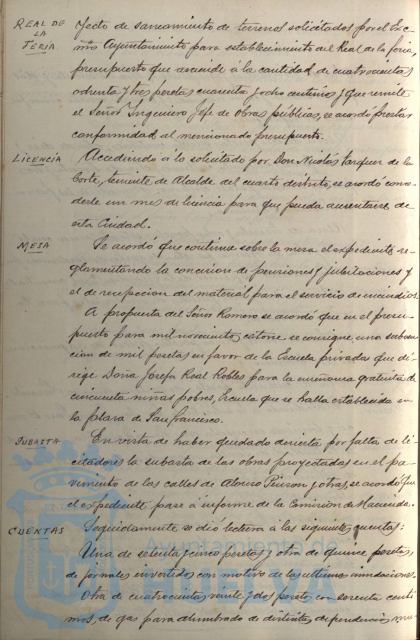 REAL DE
LA
FERIA
yecto de saneamiento de terrenos solicitados por el Exc
mo Ayuntamiento para establecimiento del Real de la feria,
presupuesto que asciende á la cantidad de cuatrocientas
ochenta y tres pesetas cuarenta y ocho centimos y que remite
el Señor Ingeniero Jefe de Obras públicas, se acordó prestar
conformidad al mencionado presupuesto.
LICENCIA
Accediendo á lo solicitado por Don Nicolás Vazquez de la
Corte, teniente de Alcalde del cuarto distrito, se acordó conce-
derle un mes de licencia para que pueda ausentarse de
esta Ciudad.
MESA
Se acordó que continue sobre la mesa el expediente re-
glamentando la concesion de pensiones y jubilaciones y
el de recepcion del material para el servicio de incendios.
A propuesta del Señor Romero se acordó que en el presu-
puesto para mil novecientos catorce se consigne una subven
cion de mil pesetas en favor de la Escuela privada que di-
rige Doña Josefa Real Robles para la enseñanza gratuita de
cincuenta niñas pobres, Escuela que se halla establecida en
la plaza de San Francisco.
SUBASTA
En vista de haber quedado desierta por falta de li-
citadores la subasta de las obras proyectadas en el pa-
vimento de las calles de Alonso Pinzon y otras, se acordó que
el expediente pase á informe de la Comision de Hacienda.
CUENTAS
Seguidamente se dió lectura á las siguientes cuentas:
Una de setenta y cinco pesetas y otra de quince pesetas,
de jornales invertidos con motivo de las ultimas inundaciones.
Otra de cuatrocientas veinte y dos pesetas con sesenta centi
mos, de gas para alumbrado de distintas dependencias mu
Ayuntamiento de